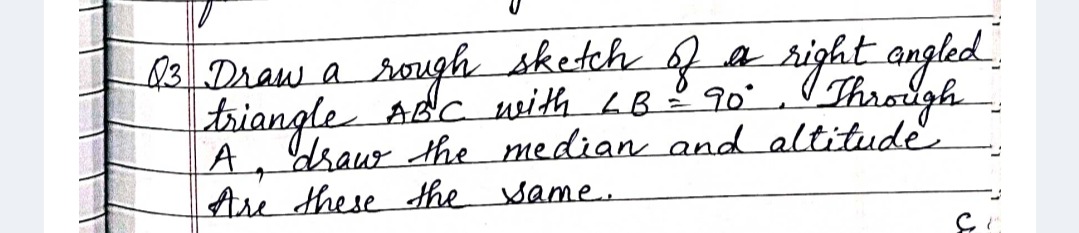 Q3 Draw a rough sketch of a right angled
triangle ABC with ∠B = 90°. Through
A, draw the median and altitude.
Are these the same.